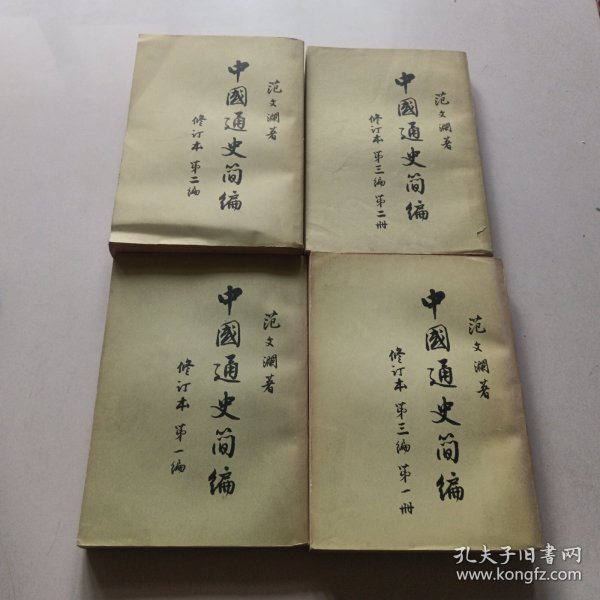 范文瀾著
中國通史简编
修订本 第二编
范文瀾著
中國通史简编
修订本 第三编 第二册
范文瀾著
中國通史简编
修订本 第一编
范文瀾著
中國通史简编
修订本 第三编 第一册
孔夫子旧书网
www.kongfz.com